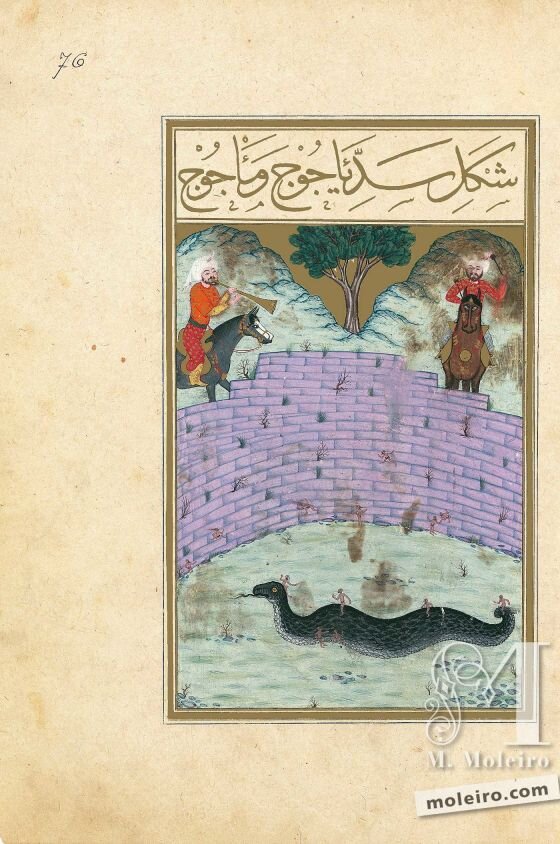 76
شكل سدّ ياجوج ومأجوج
M. Moleiro
moleiro.com